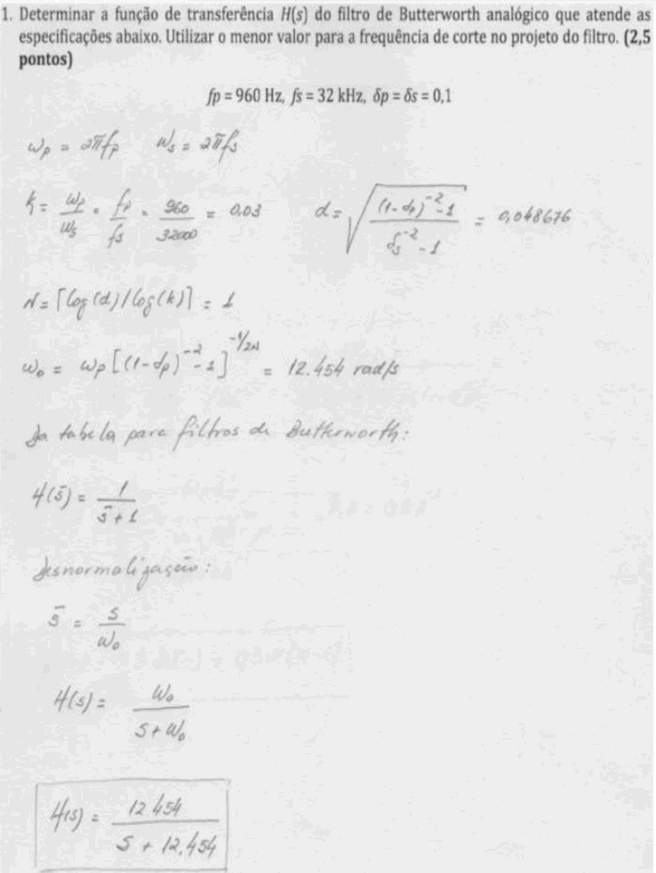 1. Determinar a função de transferência H(s) do filtro de Butterworth analógico que atende as
especificações abaixo. Utilizar o menor valor para a frequência de corte no projeto do filtro. (2,5
pontos)
fp = 960 Hz, fs = 32 kHz, δp = δs = 0,1
ωp = 2πfp ωs = 2πfs
k = ωp/ωs = fp/fs = 960/32000 = 0,03 d = √(((1-δp)^-2 - 1)/(δs^-2 - 1)) = 0,048676
N = ⌈log(d)/log(k)⌉ = 1
ω₀ = ωp[(1-δp)^-2 - 1]^-1/2N = 12.454 rad/s
Da tabela para filtros de Butterworth:
H(s̄) = 1/(s̄ + 1)
Desnormalização:
s̄ = s/ω₀
H(s) = ω₀/(s + ω₀)
H(s) = 12.454/(s + 12.454)